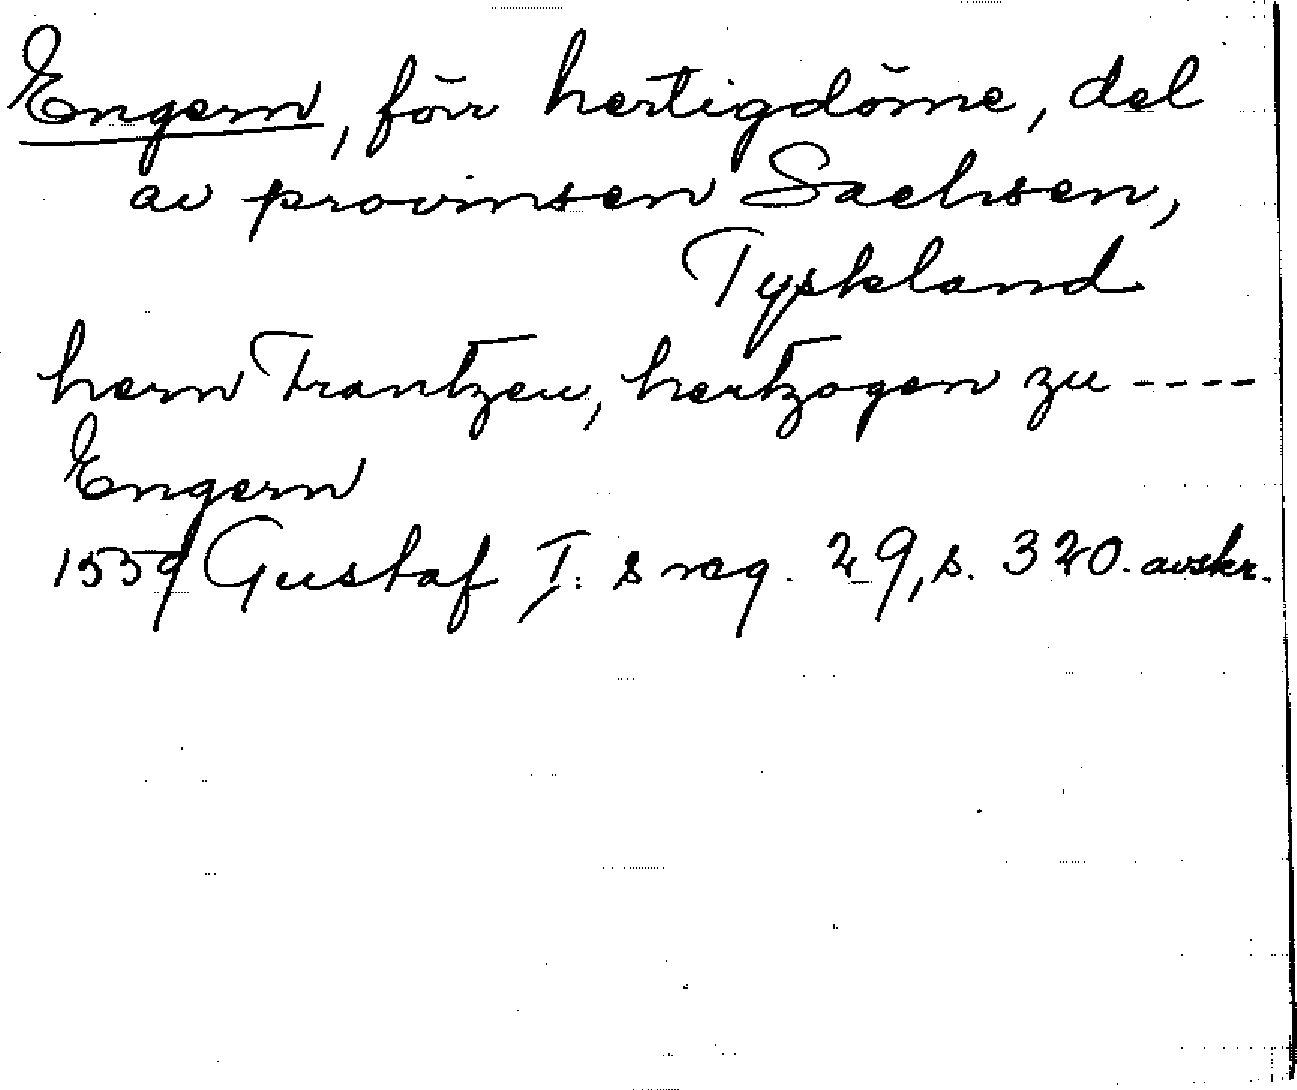 Engern, förr hertigdöme, del
av provinsen Sachsen,
Tyskland
hern Frantzen, hertzogen zu ----
Engern
1559 Gustaf I:s reg. 29, s. 320. avskr.